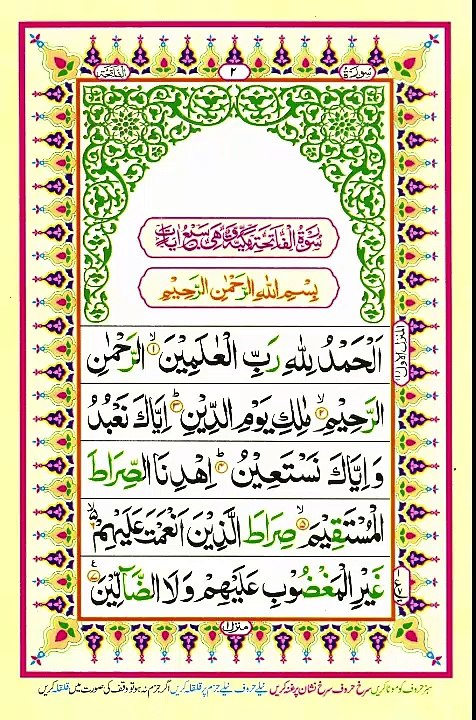 سورة ٢ الفاتحة
سُوْرَةُ الْفَاتِحَةِ مَكِّيَّةٌ وَّهِىَ سَبْعُ اٰيَاتٍ
بِسْمِ اللهِ الرَّحْمٰنِ الرَّحِيْمِ
اَلْحَمْدُ لِلّٰهِ رَبِّ الْعٰلَمِيْنَ ۙ﴿۱﴾ الرَّحْمٰنِ
الرَّحِيْمِ ۙ﴿۲﴾ مٰلِكِ يَوْمِ الدِّيْنِ ؕ﴿۳﴾ اِيَّاكَ نَعْبُدُ
وَاِيَّاكَ نَسْتَعِيْنُ ؕ﴿۴﴾ اِهْدِنَا الصِّرَاطَ
الْمُسْتَقِيْمَ ۙ﴿۵﴾ صِرَاطَ الَّذِيْنَ اَنْعَمْتَ عَلَيْهِمْ ۙ﴿۶﴾
غَيْرِ الْمَغْضُوْبِ عَلَيْهِمْ وَلَا الضَّآلِّيْنَ ﴿۷﴾
المنزل الاول ١
منزل ١
سبز حروف کو موٹا کریں سرخ حروف سرخ نشان پر غنہ کریں نیلے حروف نیلے جزم پر قلقلہ کریں اگر جزم نہ ہو تو وقف کی صورت میں قلقلہ کریں